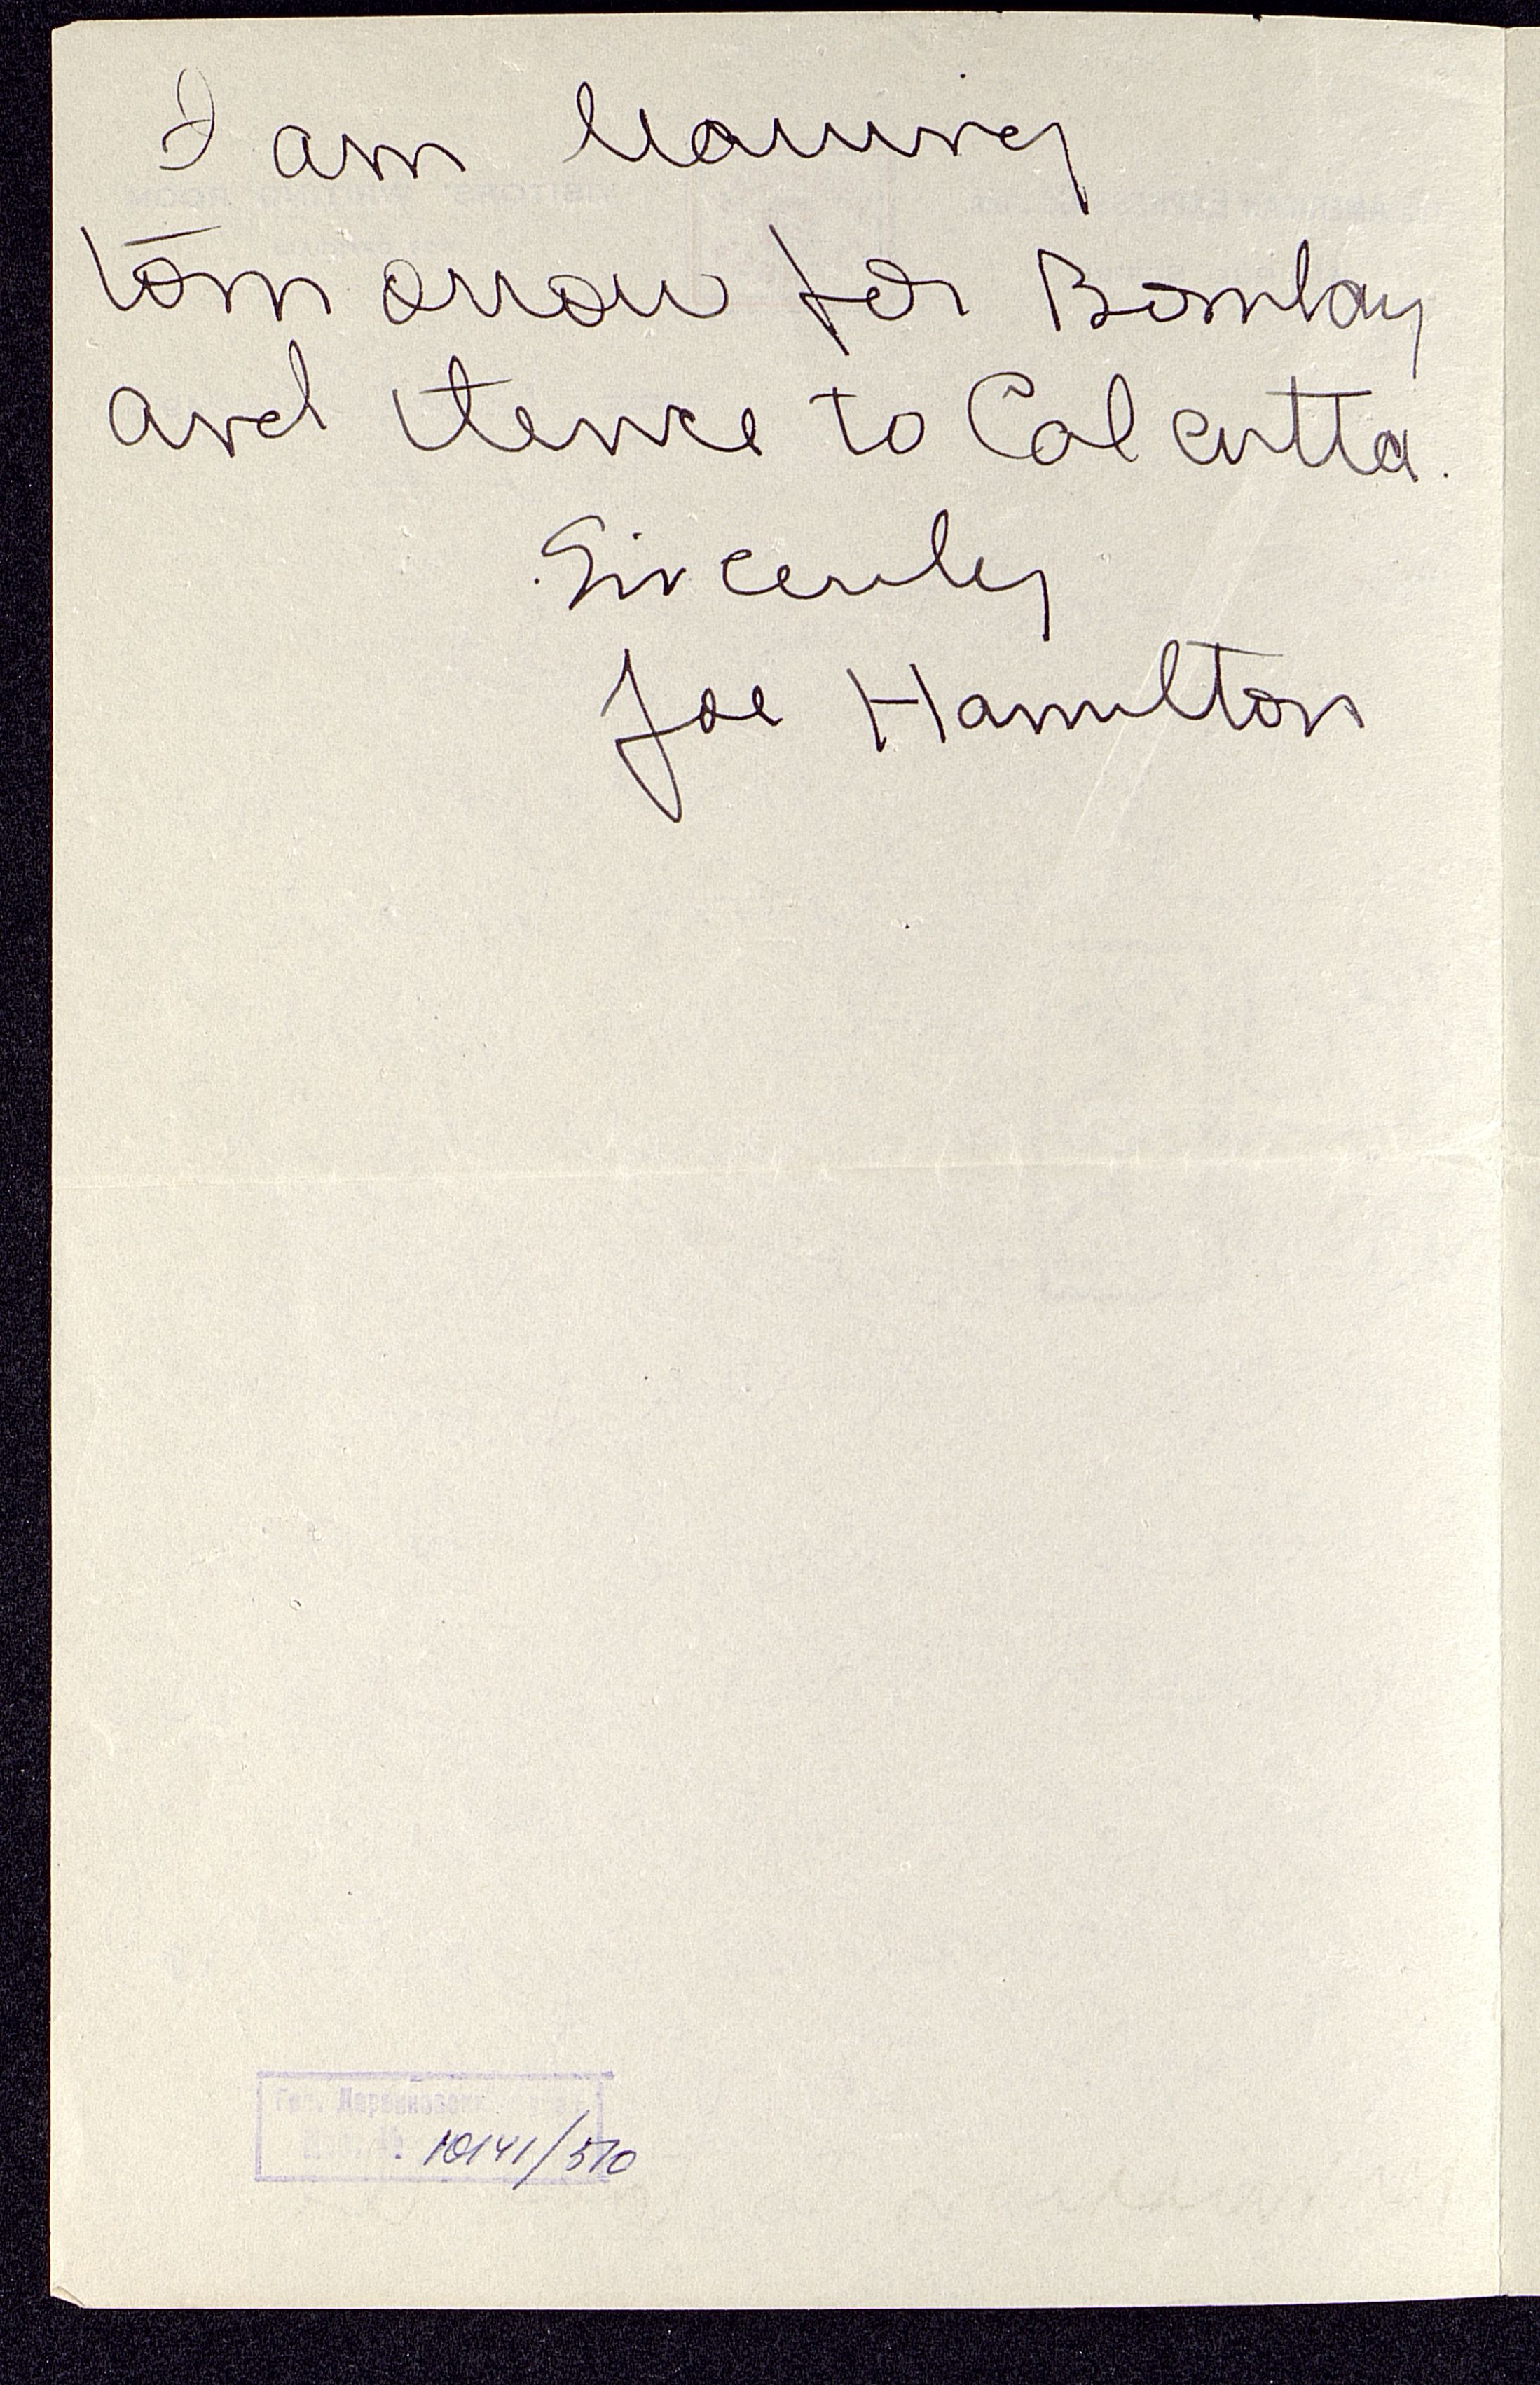 I am leaving
tomorrow for Bombay
and thence to Calcutta.
Sincerely
Joe Hamilton
Гос. Дарвиновский
10141/510